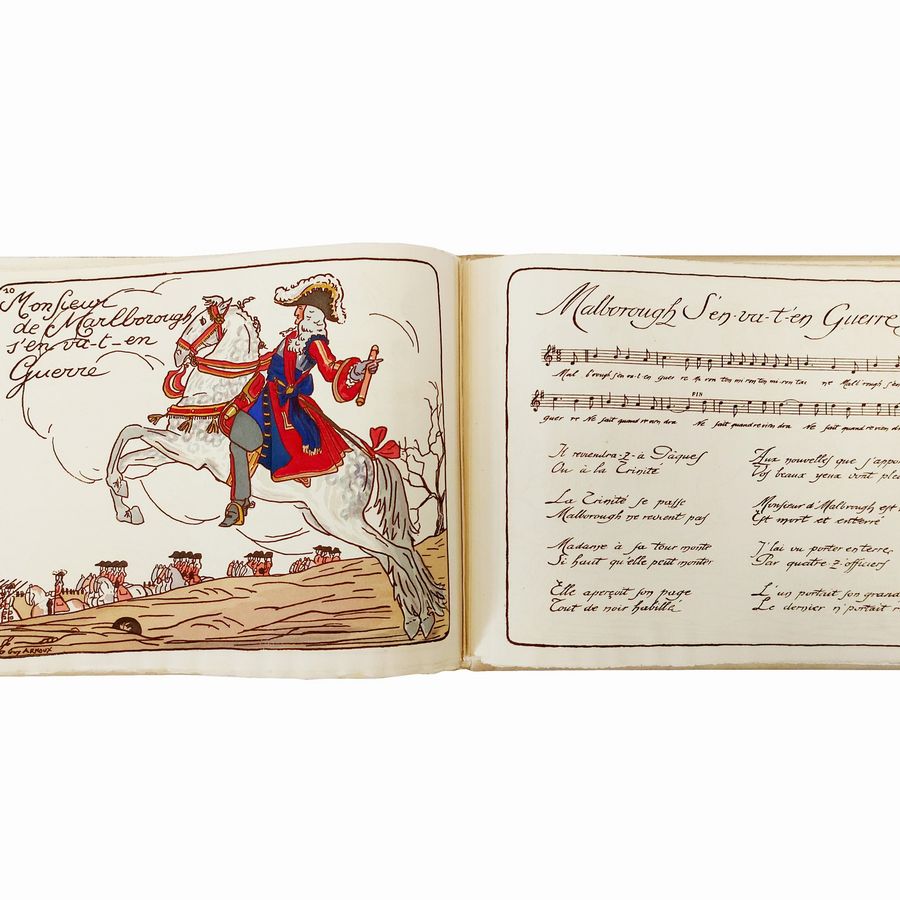 10
Monsieur
de Marlborough
s'en-va-t-en
Guerre
Guy ARNOUX
Malborough S'en-va-t'en Guerre
FIN
guer re Ne sait quand re vien dra Ne sait quand re vien dra Ne sait quand re vien
Il reviendra-z-à Pâques
Ou à la Trinité
La Trinité se passe
Malborough ne revient pas
Madame à sa tour monte
Si haut qu'elle peut monter
Elle aperçoit son page
Tout de noir habillé
Aux nouvelles que j'appor
Vos beaux yeux vont pleu
Monsieur d'Malbrough est
Est mort et enterré
J'lai vu porter en terre
Par quatre-z-officiers
L'un portait son grand
Le dernier n'portait r